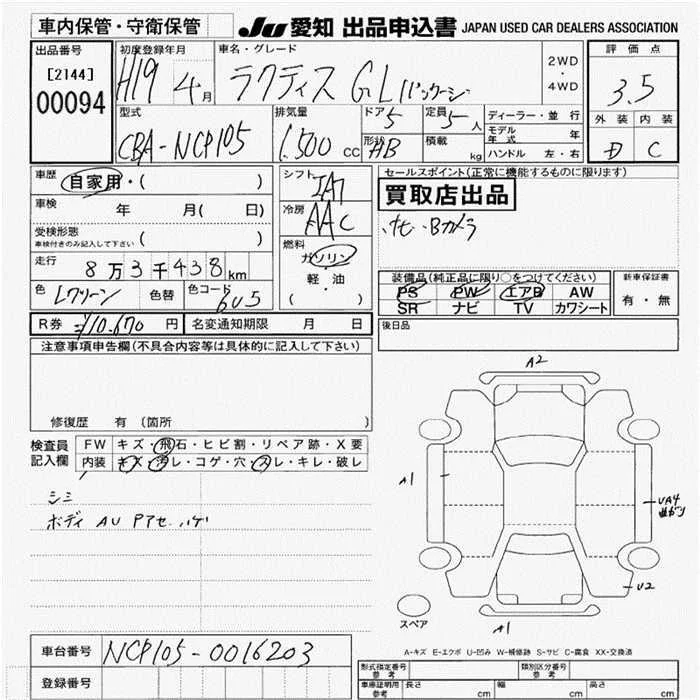 車内保管・守衛保管
JU 愛知 出品申込書 JAPAN USED CAR DEALERS ASSOCIATION
出品番号
[2144]
00094
初度登録年月
H19 4月
車名・グレード
ラクティス G Lパッケージ
2WD
・
4WD
評価点
3.5
外装 内装
D C
型式
CBA-NCP105
排気量
1.500 CC
ドア 5
形状 HB
定員 5人
積載 kg
ディーラー・並行
モデル年式 年
ハンドル 左・右
車歴 自家用・( )
車検 年 月( 日)
受検形態
車検付きのみ記入して下さい ( )
走行 8万3千438km
色 Lグリーン 色替 色コード 6U5
シフト IA7
冷房 AAC
燃料
ガソリン
・
軽・油
( )
セールスポイント(正常に機能するものに限ります)
買取店出品
ナビ Bカメラ
装備品(純正品に限り○をつけてください)
PS PW エアB AW
SR ナビ TV カワシート
新車保証書
有・無
後日品
R券 ¥10.670円 名変通知期限 月 日
注意事項申告欄(不具合内容等は具体的に記入して下さい)
修復歴 有 (箇所 )
検査員記入欄
FW キズ・飛石・ヒビ割・リペア跡・X要
内装 キズ・汚レ・コゲ・穴・スレ・キレ・破レ
シミ
ボディ AU Pアセ ハゲ
A2
A1
UA4
曲がり
U2
A1
スペア
A-キズ E-エクボ U-凹み W-補修跡 S-サビ C-腐食 XX-交換済
車台番号 NCP105-0016203
登録番号
型式指定番号 参考
類別区分番号 参考
車庫証明用 参考
長さ cm 幅 cm 高さ cm